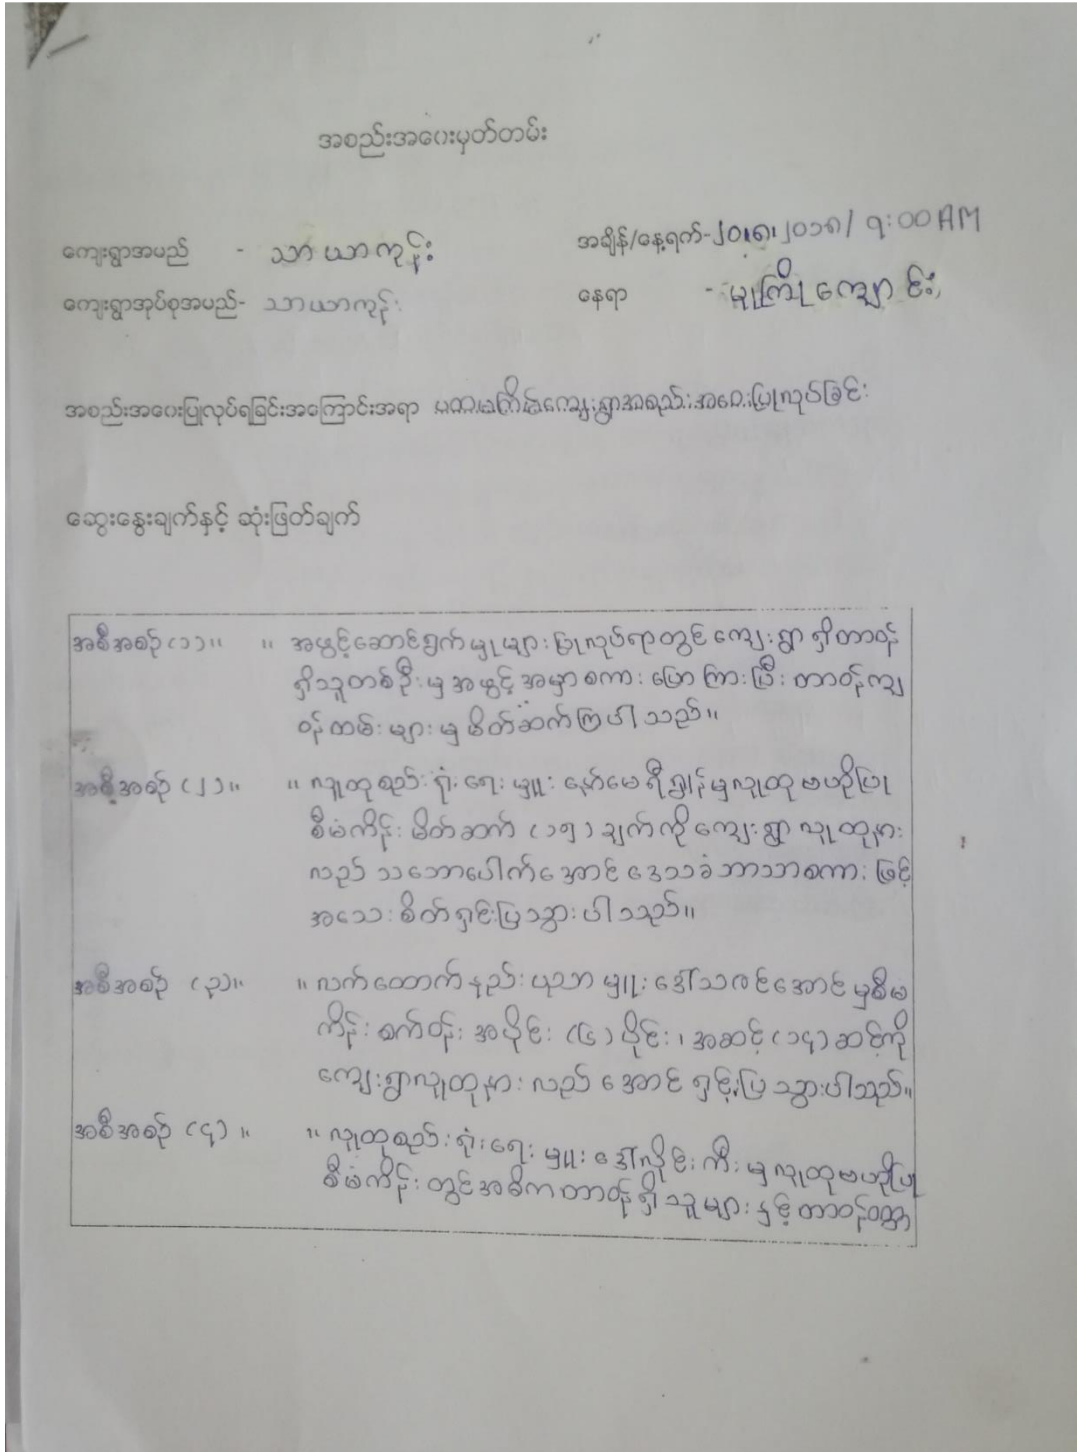 အစည်းအဝေးမှတ်တမ်း
ကျေးရွာအမည် - သာယာကုန်း
အချိန်/နေ့ရက်-၂၀၊၈၊၂၀၁၈/ ၇:၀၀ AM
ကျေးရွာအုပ်စုအမည်- သာယာကုန်း
နေရာ - မူကြိုကျောင်း
အစည်းအဝေးပြုလုပ်ရခြင်းအကြောင်းအရာ ပထမအကြိမ်ကျေးရွာအစည်းအဝေးပြုလုပ်ခြင်း
ဆွေးနွေးချက်နှင့် ဆုံးဖြတ်ချက်
အစီအစဉ်(၁)။ ။ အဖွင့်ဆောင်ရွက်မှုများပြုလုပ်ရာတွင်ကျေးရွာရှိတာဝန်
ရှိသူတစ်ဦးမှအဖွင့်အမှာစကားပြောကြားပြီးတာဝန်ကျ
ဝန်ထမ်းများမှမိတ်ဆက်ကြပါသည်။
အစီအစဉ်(၂)။ ။ လူထုစည်းရုံးရေးမှူးနော်မေရီရွှန်မှလူထုဗဟိုပြု
စီမံကိန်းမိတ်ဆက်(၁၅)ချက်ကိုကျေးရွာလူထုနား
လည်သဘောပေါက်အောင်ဒေသခံဘာသာစကားဖြင့်
အသေးစိတ်ရှင်းပြသွားပါသည်။
အစီအစဉ် (၃)။ ။ လက်ထောက်နည်းပညာမှူးဒေါ်သဇင်အောင်မှစီမံ
ကိန်းစက်ဝန်းအပိုင်း(၆)ပိုင်း၊အဆင့်(၁၄)ဆင့်ကို
ကျေးရွာလူထုနားလည်အောင်ရှင်းပြသွားပါသည်။
အစီအစဉ်(၄)။ ။ လူထုစည်းရုံးရေးမှူးဒေါ်လှိုင်းကီးမှလူထုဗဟိုပြု
စီမံကိန်းတွင်အဓိကတာဝန်ရှိသူများနှင့်တာဝန်ဝတ္တ